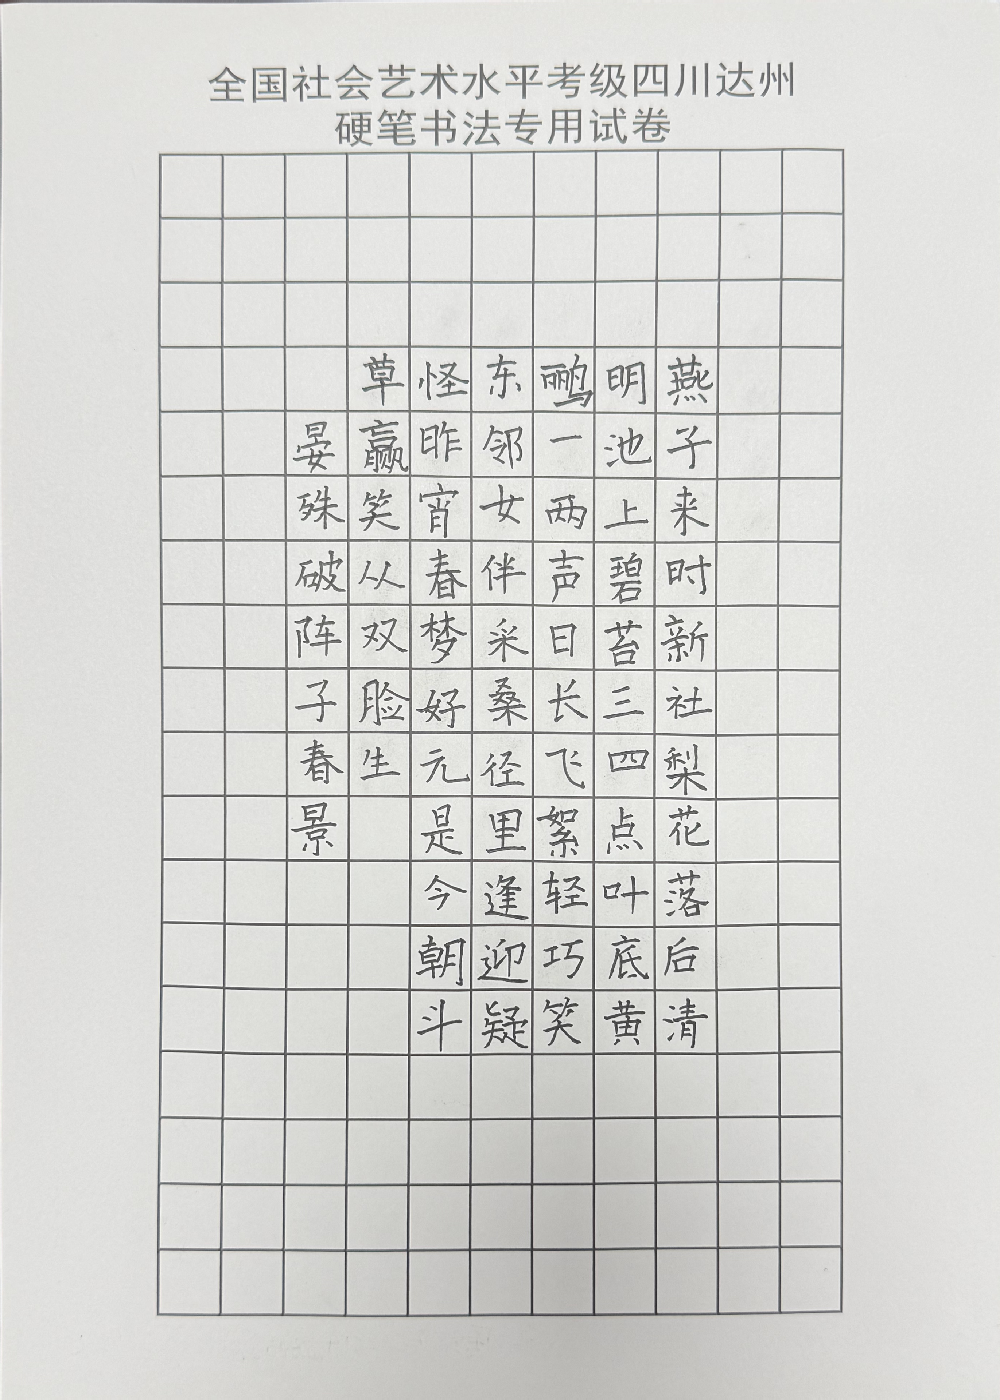 全国社会艺术水平考级四川达州
硬笔书法专用试卷
燕子来时新社梨花落后清
明池上碧苔三四点叶底黄
鹂一两声日长飞絮轻巧笑
东邻女伴采桑径里逢迎疑
怪昨宵春梦好元是今朝斗
草赢笑从双脸生
晏殊破阵子春景